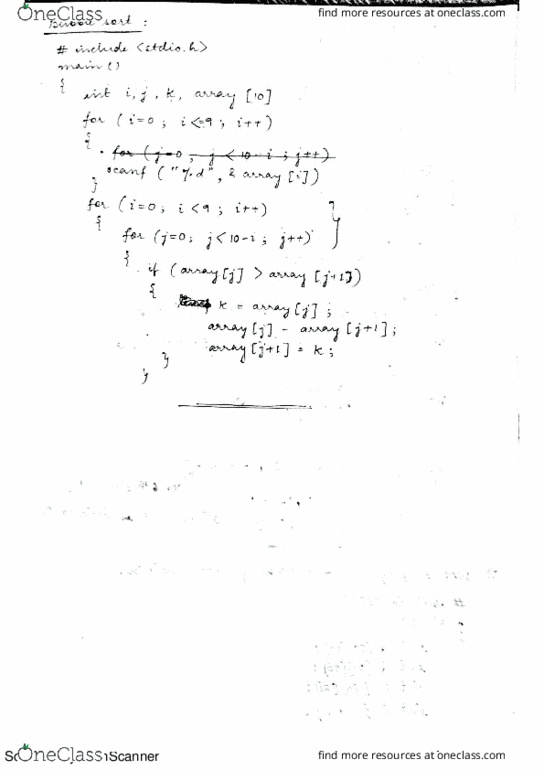 OneClass
find more resources at oneclass.com
Bubble sort :
# include <stdio.h>
main ()
{
int i, j, k, array [10]
for ( i=0 ; i <=9 ; i++ )
{
for ( j=0 ; j < 10-i ; j++ )
scanf ( "%d", & array [i] )
}
for ( i=0 ; i <9 ; i++ )
{
for ( j=0 ; j< 10-i ; j++ )
{
if ( array [j] > array [j+1] )
{
k = array [j] ;
array [j] - array [j+1] ;
array [j+1] = k ;
}
}
OneClass
Scanner
find more resources at oneclass.com